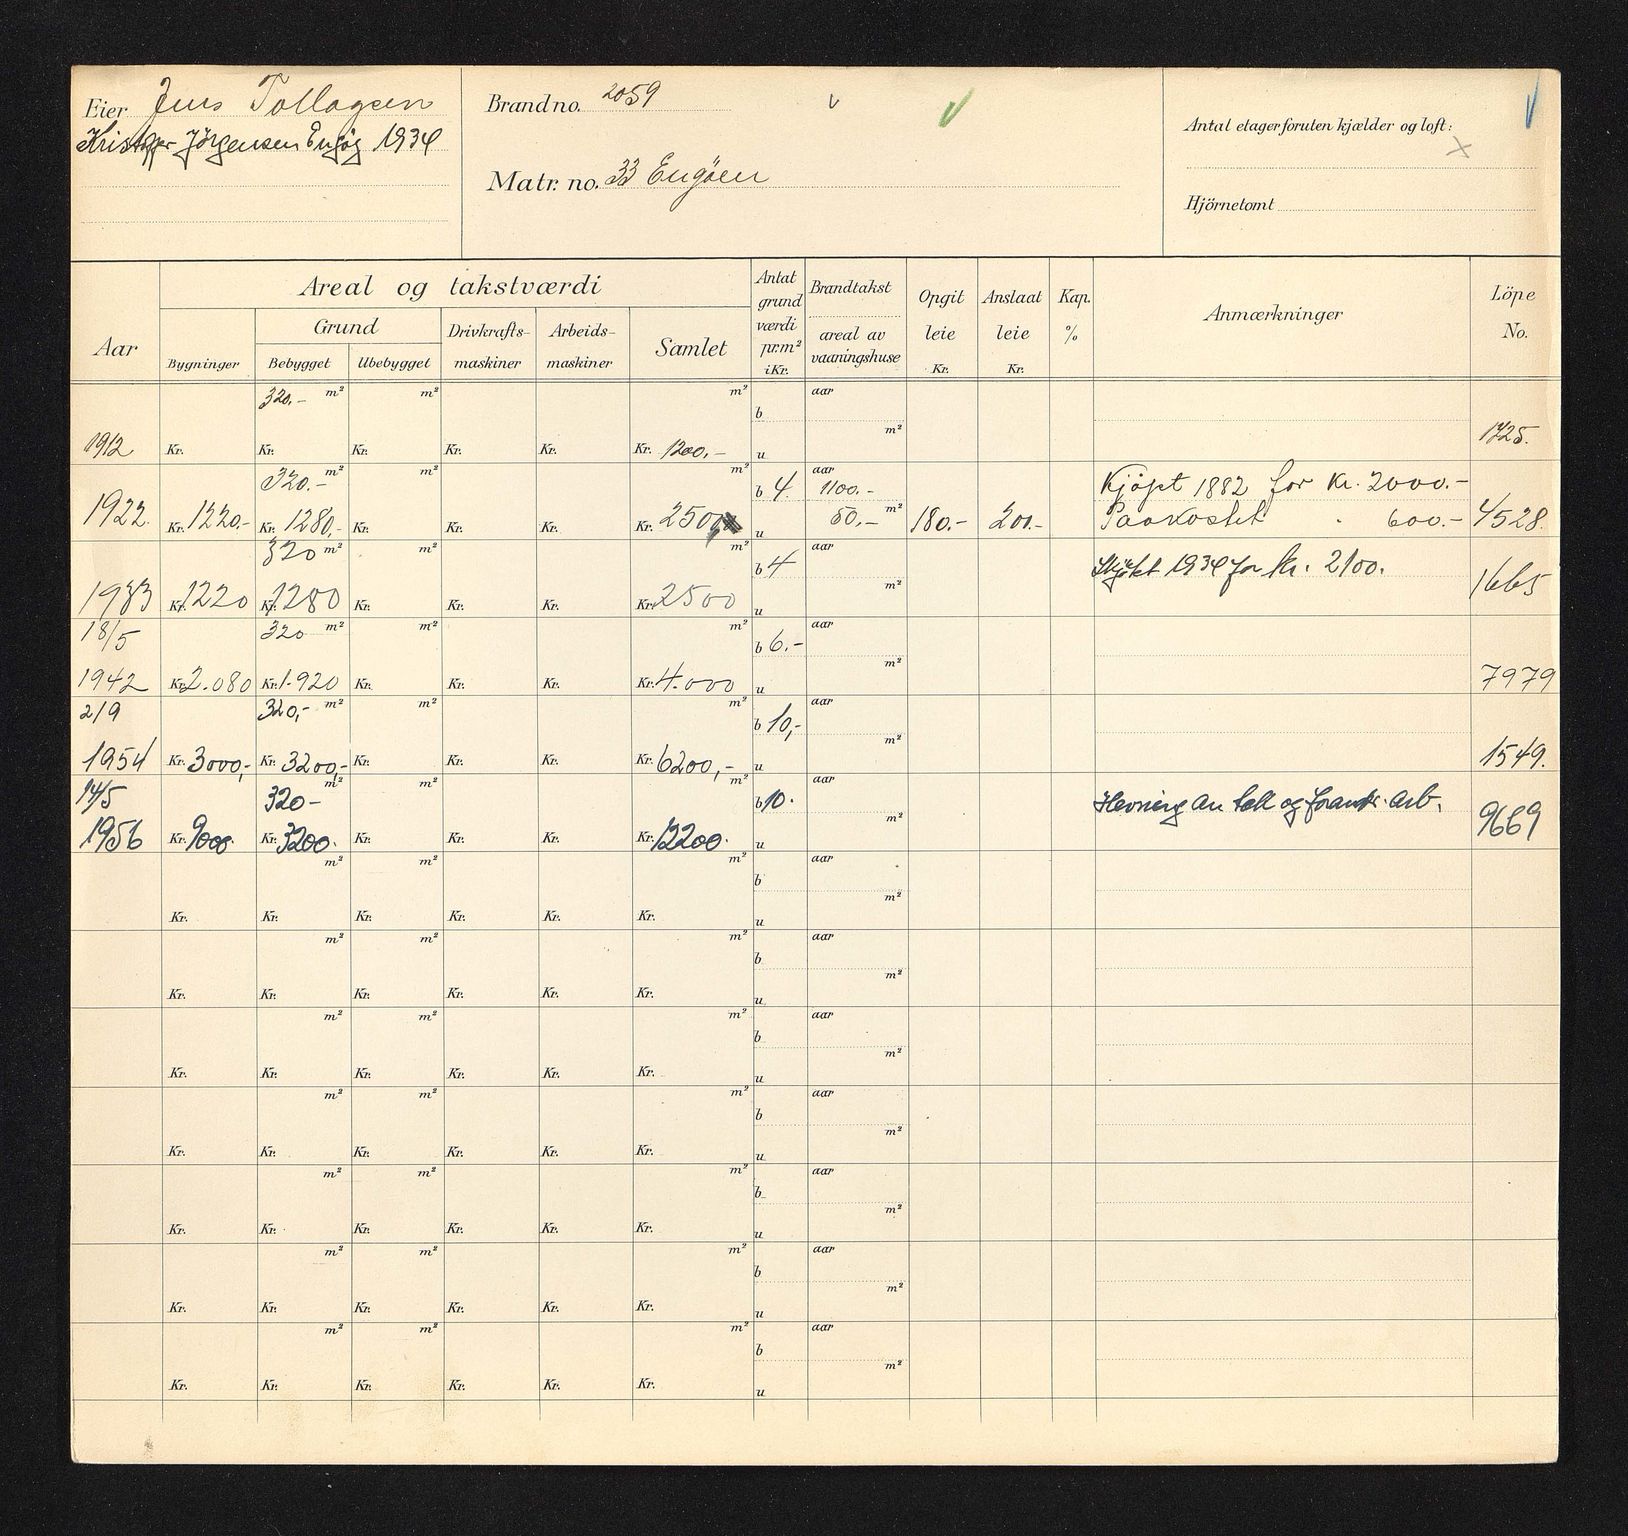 Eier Jens Tollagsen
Kristoffer Jörgensen Engöy 1934
Brandno. 2059
Matr. no. 33 Engöen
Antal etager foruten kjælder og loft:
Hjörnetomt
Areal og takstværdi
Aar
Bygninger
Grund
Bebygget Ubebygget
Drivkrafts-
maskiner
Arbeids-
maskiner
Samlet
Antat
grund
værdi
pr. m²
i Kr.
Brandtakst
areal av
vaaningshuse
Opgit
leie
Kr.
Anslaat
leie
Kr.
Kap.
%
Anmærkninger
Löpe
No.
320.- m² m² m² aar
b
m²
1912 Kr. Kr. Kr. Kr. Kr. Kr. 1200,- u 1725.
320.- m² m² m² b 4. aar 1100.- Kjöpt 1882 for kr. 2000.-
1922. Kr. 1220.- Kr. 1280,- Kr. Kr. Kr. Kr. 2500 u 50,- m² 180.- 200.- Paakostet " 600.- 4528.
320 m² m² m² b 4 aar Skjötet 1934 for kr. 2100.
m²
1933 Kr. 1220 Kr. 1280 Kr. Kr. Kr. Kr. 2500 u 1665
18/5 320 m² m² m² b 6.- aar
m²
1942 Kr. 2.080 Kr. 1.920 Kr. Kr. Kr. Kr. 4.000 u 7979
2/9 320,- m² m² m² b 10,- aar
m²
1954 Kr. 3000,- Kr. 3200,- Kr. Kr. Kr. Kr. 6200,- u 1549.
14/5 320- m² m² m² b 10. aar Hevning av tak og forandr. arb.
m²
1956 Kr. 9000. Kr. 3200. Kr. Kr. Kr. Kr. 12200. u 9669
m² m² m² aar
b
m²
Kr. Kr. Kr. Kr. Kr. Kr. u
m² m² m² aar
b
m²
Kr. Kr. Kr. Kr. Kr. Kr. u
m² m² m² aar
b
m²
Kr. Kr. Kr. Kr. Kr. Kr. u
m² m² m² aar
b
m²
Kr. Kr. Kr. Kr. Kr. Kr. u
m² m² m² aar
b
m²
Kr. Kr. Kr. Kr. Kr. Kr. u
m² m² m² aar
b
m²
Kr. Kr. Kr. Kr. Kr. Kr. u
m² m² m² aar
b
m²
Kr. Kr. Kr. Kr. Kr. Kr. u